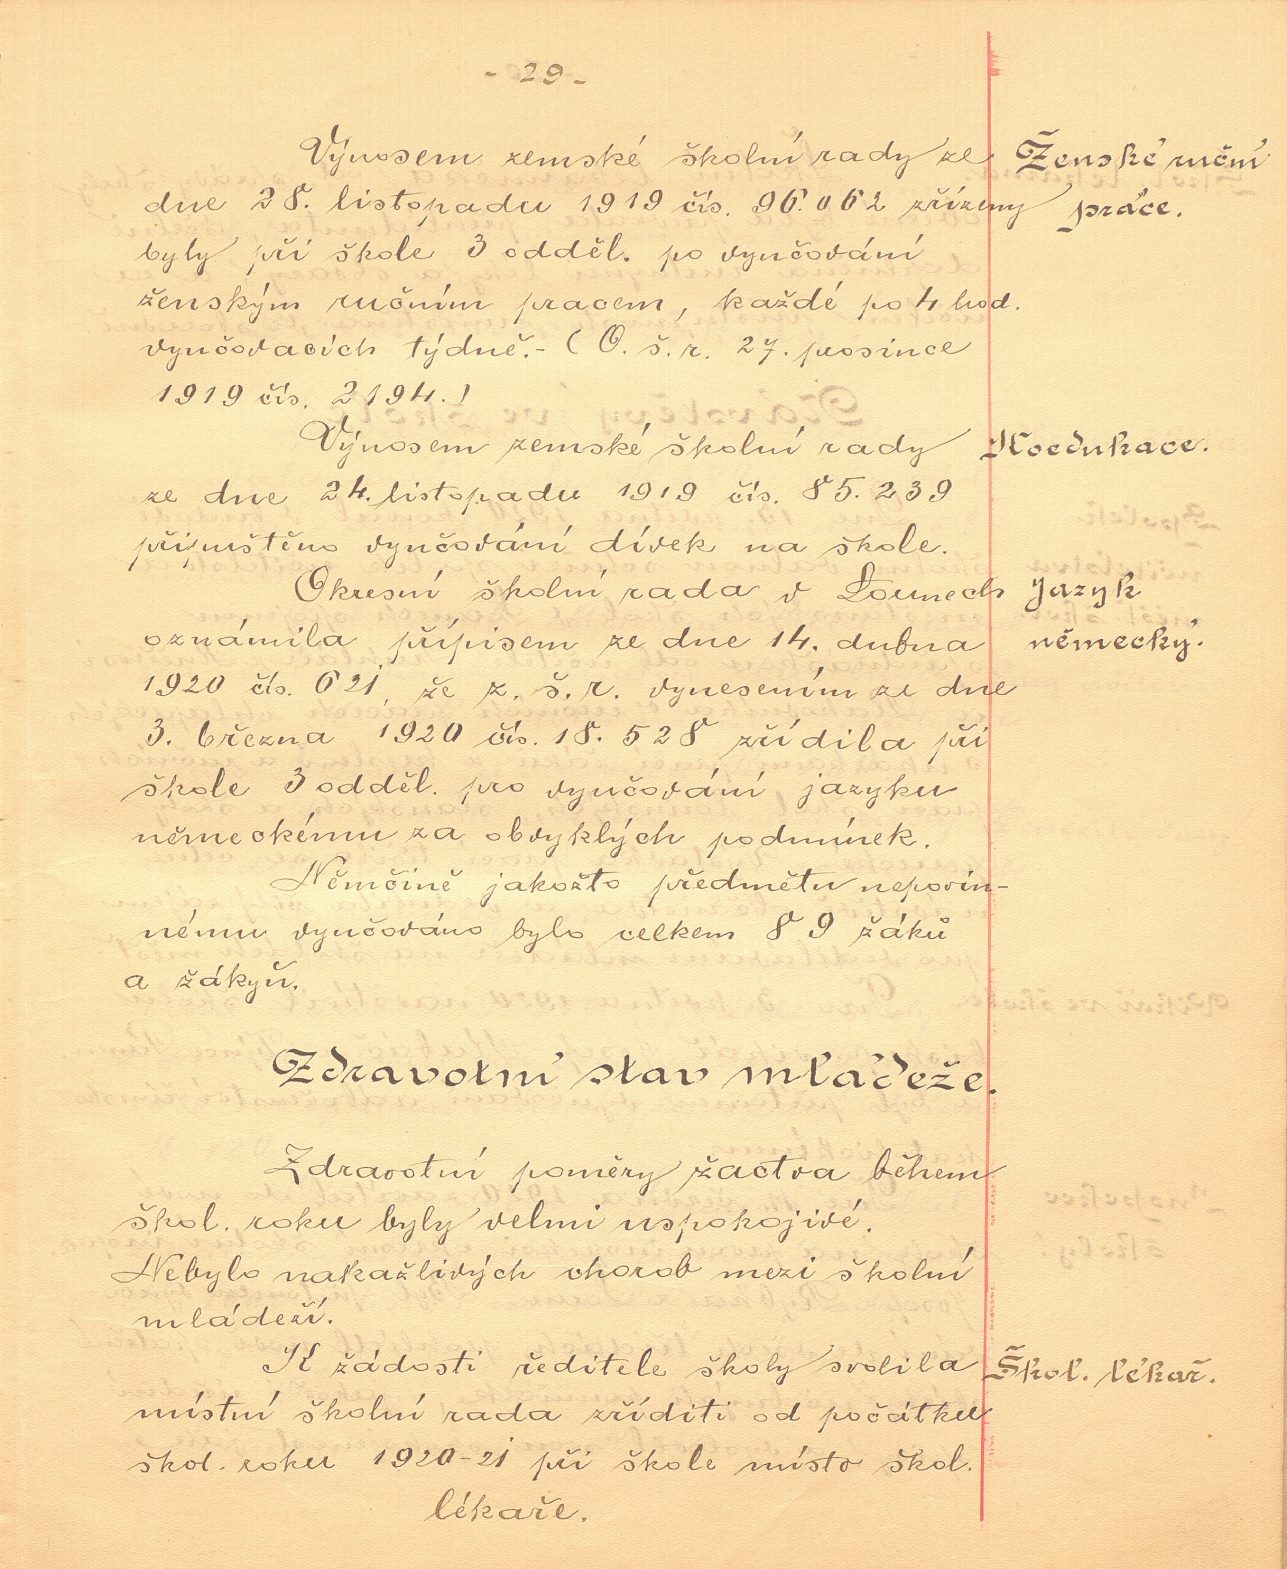 - 29 -
Výnosem zemské školní rady ze
Ženské ruční
dne 28. listopadu 1919 čís. 96.062 zřízeny
práce.
byly při škole 3 odděl. po vyučování
ženským ručním pracem, každé po 4 hod.
vyučovacích týdně.- (O. š. r. 27. prosince
1919 čís. 2194.)
Výnosem zemské školní rady
Koedukace.
ze dne 24. listopadu 1919 čís. 85.239
připuštěno vyučování dívek na škole.
Okresní školní rada v Lounech
Jazyk
oznámila přípisem ze dne 14. dubna
německý.
1920 čís. 621, že z. š. r. vynesením ze dne
3. března 1920 čís. 18.528 zřídila při
škole 3 odděl. pro vyučování jazyku
německému za obvyklých podmínek.
Němčině jakožto předmětu nepovin-
nému vyučováno bylo celkem 89 žáků
a žákyň.
Zdravotní stav mládeže.
Zdravotní poměry žactva během
škol. roku byly velmi uspokojivé.
Nebylo nakažlivých chorob mezi školní
mládeží.
K žádosti ředitele školy svolila
Škol. lékař.
místní školní rada zříditi od počátku
škol. roku 1920-21 při škole místo škol.
lékaře.